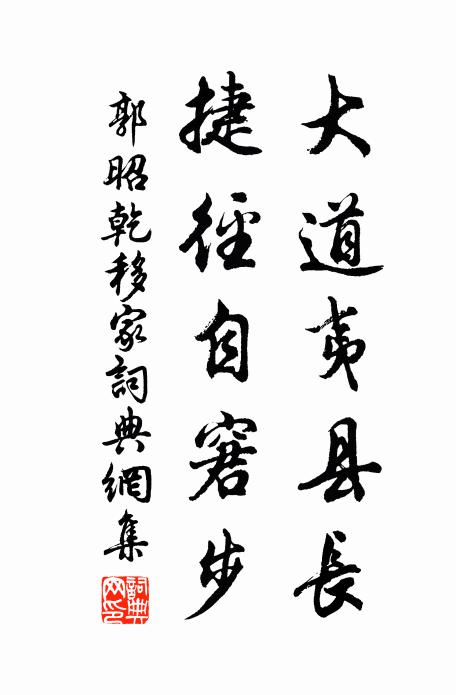 大道夷县長
捷徑自窘步
郭昭乾移家詞典網集
詞典網印